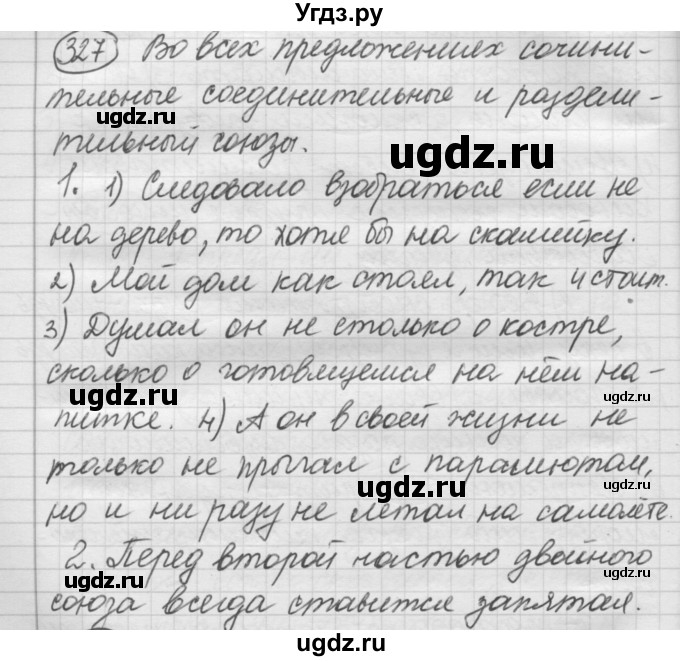 Угдз.ру
327 Во всех предложениях сочини-
тельные соединительные и раздели-
ugdz.ru
тельный союзы.
ugdz.ru
1. 1) Следовало взобраться если не
на дерево, то хотя бы на скамейку.
2) Мой дом как стоял, так и стоит.
ugdz.ru
3) Думал он не столько о костре,
сколько о готовящемся на нём на-
ugdz.ru
питке. 4) А он в своей жизни не
только не прыгал с парашютом,
ugdz.ru
но и ни разу не летал на самолёте.
2. Перед второй частью двойного
ugdz.ru
союза всегда ставится запятая.
ugdz.ru